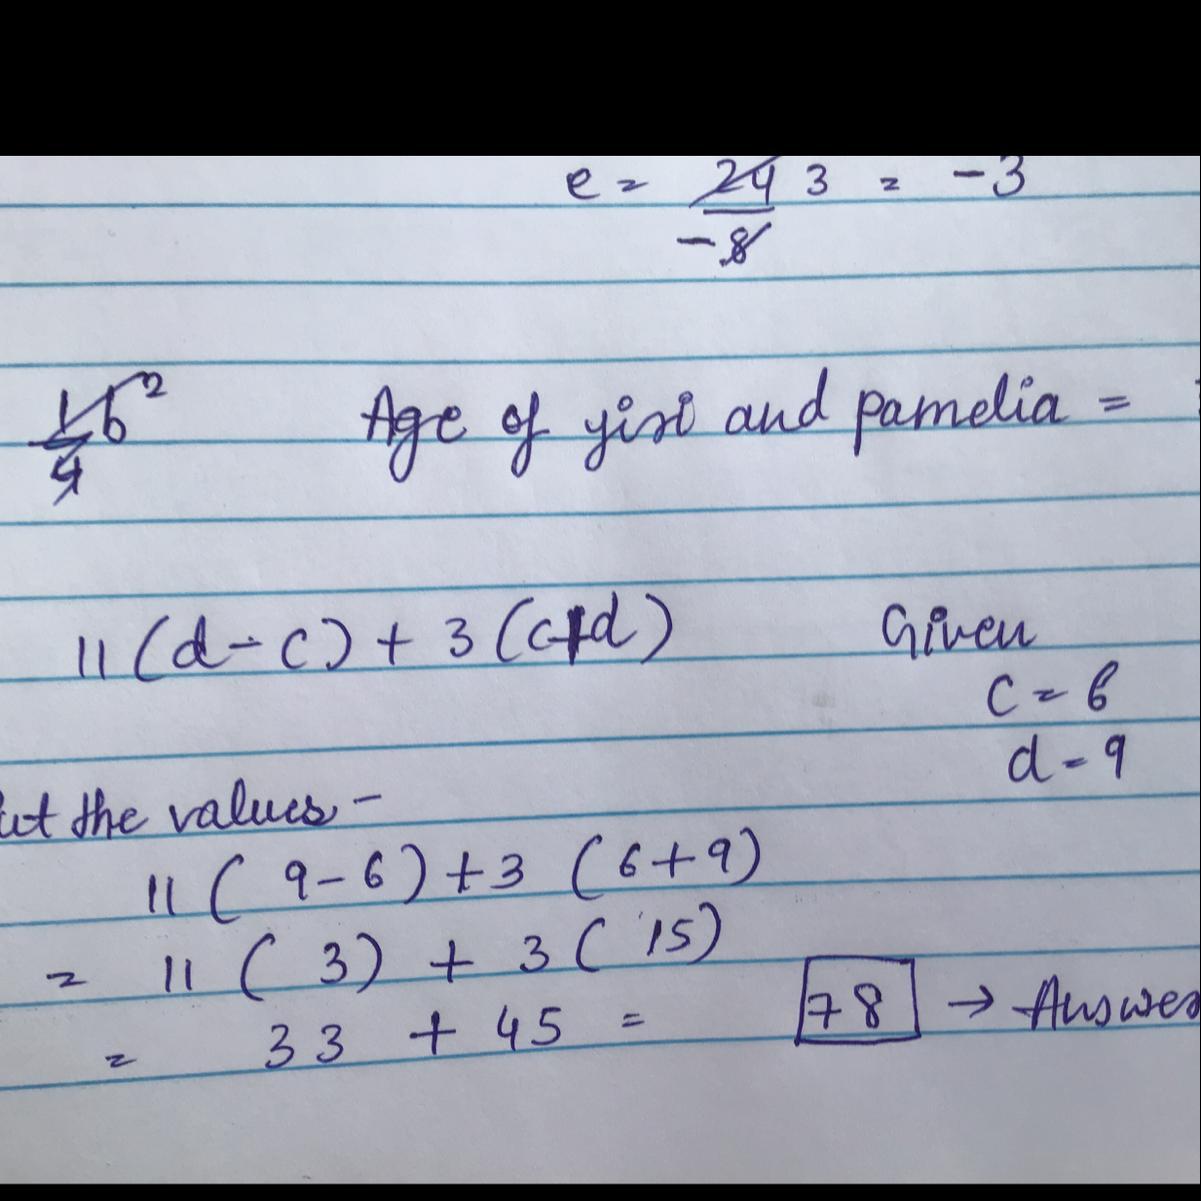 e = 24 3 = -3
-8
16 2 Age of yisi and pamelia =
11 (d - c) + 3 (c+d) Given
c = 6
d = 9
ut the values -
11 ( 9 - 6 ) + 3 ( 6 + 9 )
= 11 ( 3 ) + 3 ( 15 )
= 33 + 45 = 78 → Answer